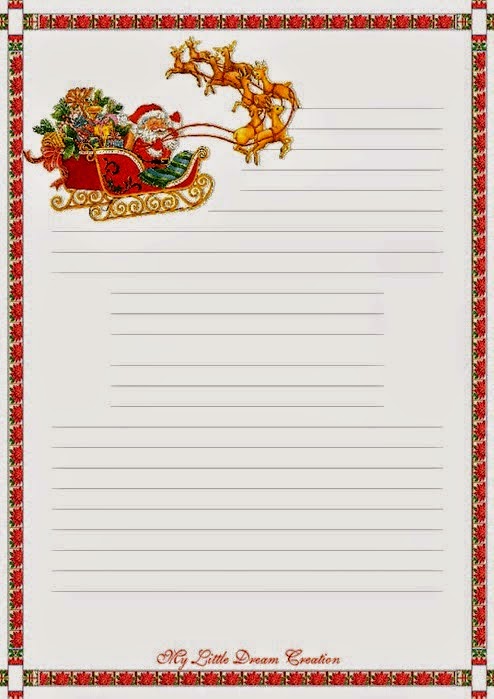 My Little Dream Creation